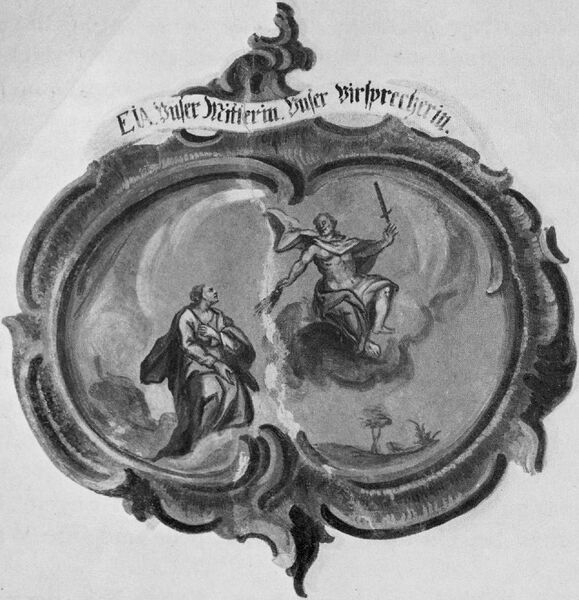 EIA. Vnser Mitlerin. Vnser Virsprecherin.